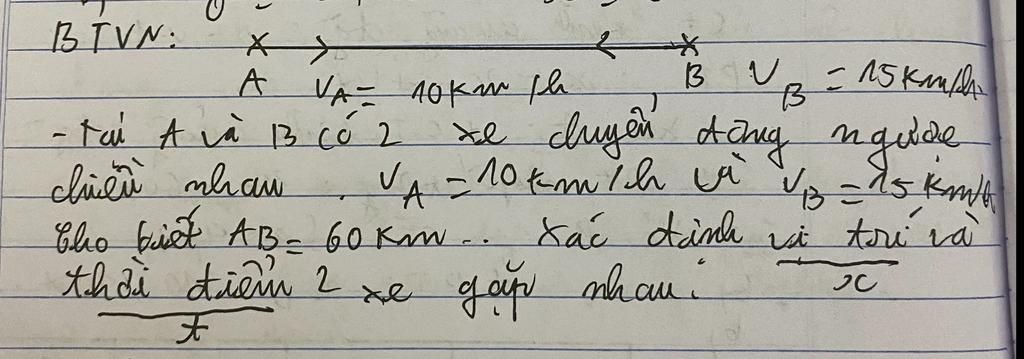 BTVN:
A VA = 10 km/h B VB = 15 km/h
- Tại A và B có 2 xe chuyển động ngược
chiều nhau. VA = 10 km/h và VB = 15 km/h
Cho biết AB = 60 km.. Xác định vị trí và
x
thời điểm 2 xe gặp nhau.
t